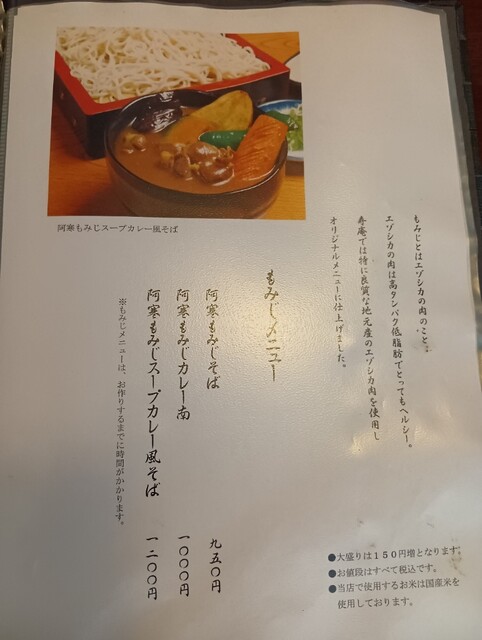 阿寒もみじスープカレー風そば
もみじとはエゾシカの肉のこと。
エゾシカの肉は高タンパク低脂肪でとってもヘルシー。
寿庵では特に良質な地元産のエゾシカ肉を使用し
オリジナルメニューに仕上げました。
もみじメニュー
阿寒もみじそば 九五〇円
阿寒もみじカレー南 一〇〇〇円
阿寒もみじスープカレー風そば 一二〇〇円
※もみじメニューは、お作りするまでに時間がかかります。
●大盛りは150円増となります。
●お値段はすべて税込です。
●当店で使用するお米は国産米を
使用しております。